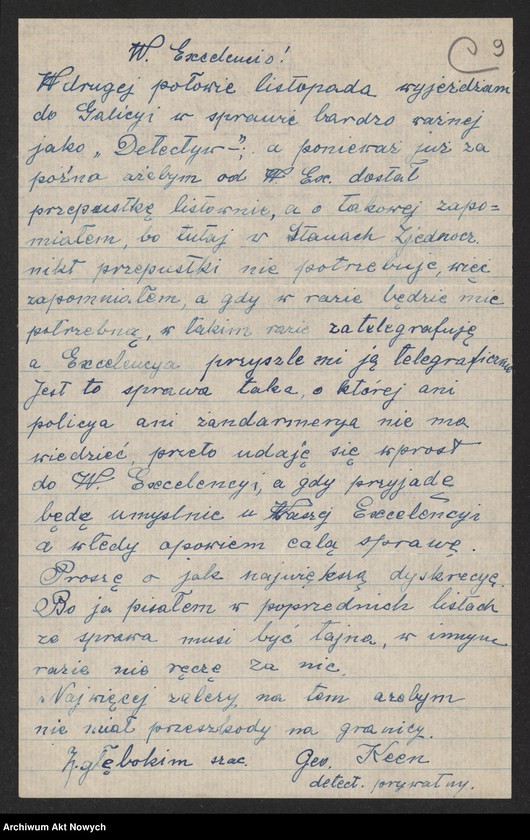 9
W. Excelencio!
W drugej połowie listopada wyjeżdżam
do Galicyi w sprawie bardzo ważnej
jako „Detectyw-" a ponieważ już za
poźna ażebym od W. Ex. dostał
przepustkę listownie, a o takowej zapo=
miałem, bo tutaj w Stanach Zjednocz.
nikt przepustki nie potrzebuje, więc
zapomniałem, a gdy w razie będzie mic
potrzebną, w takim razie zatelegrafuję
a Excelencya przyszle mi ją telegraficznie
Jest to sprawa taka, o której ani
policya ani zandarmerya nie ma
wiedzieć, przeto udaję się wprost
do W. Excelencyi, a gdy przyjadę
będę umyslnie u Waszej Excelencyi
a wtedy opowiem całą sprawę.
Proszę o jak największą dyskrecyę.
Bo ja pisałem w poprzednich listach
ze sprawa musi być tajna, w innym
razie nie ręczę za nic.
Najwięcej zależy na tem ażebym
nie miał przeszkody na granicy.
Z głębokim szac. Geo. Keen
detect. prywatny.
Archiwum Akt Nowych